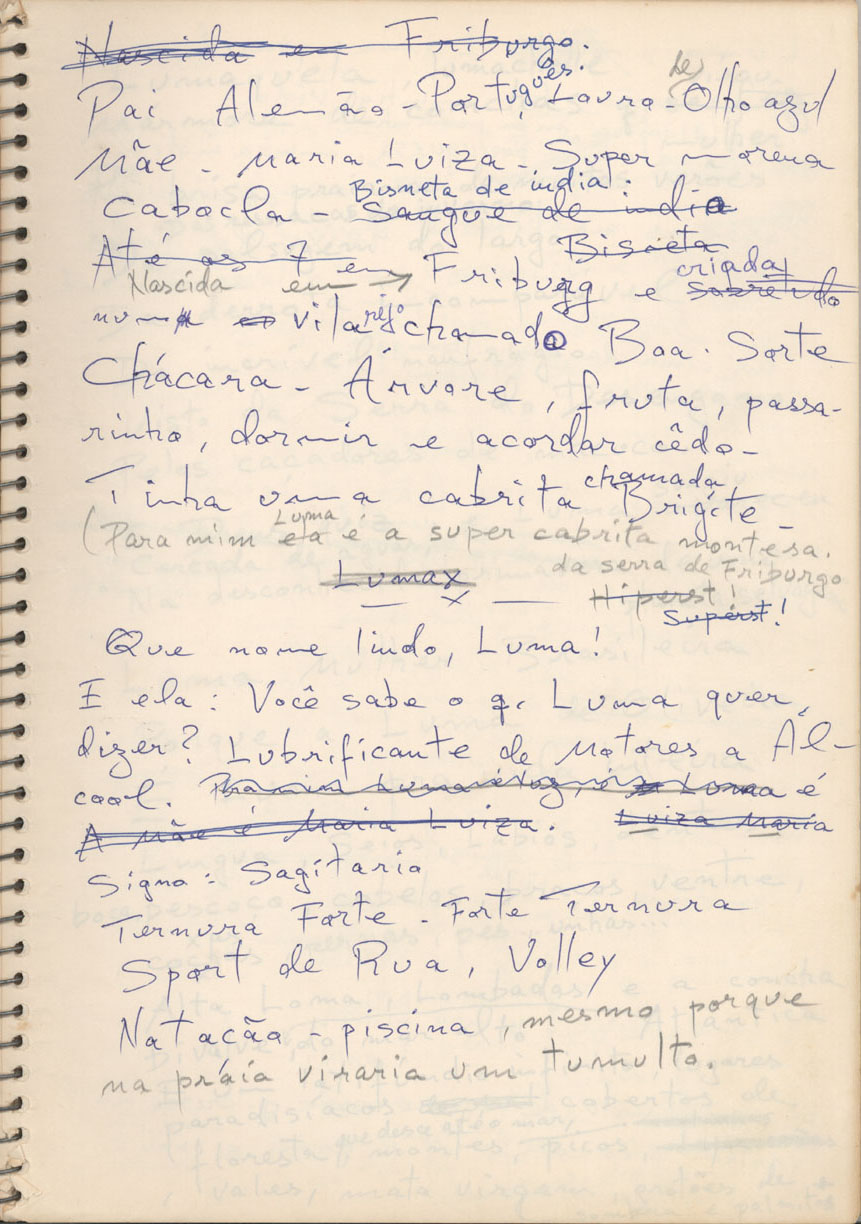 Nascida em Friburgo.
Pai Alemão - Português. Louro - de Olho azul
Mãe - Maria Luiza - Super morena
Cabocla - Bisneta de india:
Sangue de india
Bisneta
Até os 7 em Friburg e criada sobretudo
Nascida em
numa vilarejo chamado Boa Sorte
Chácara - Árvore, fruta, passa-
rinho, dormir e acordar cêdo -
Tinha uma cabrita chamada, Brigite -
(Para mim Luma ela é a super cabrita montesa.
da serra de Friburgo
Lumax
— x —
Hiperst!
Superst!
Que nome lindo, Luma!
E ela: Você sabe o q. Luma quer
dizer? Lubrificante de Motores a Ál-
cool. Luma é
A mãe é Maria Luiza. Luiza Maria
Signo: Sagitaria
Ternura Forte - Forte Ternura
Sport de Rua, Volley
Natacão - piscina, mesmo porque
na práia viraria um tumulto.